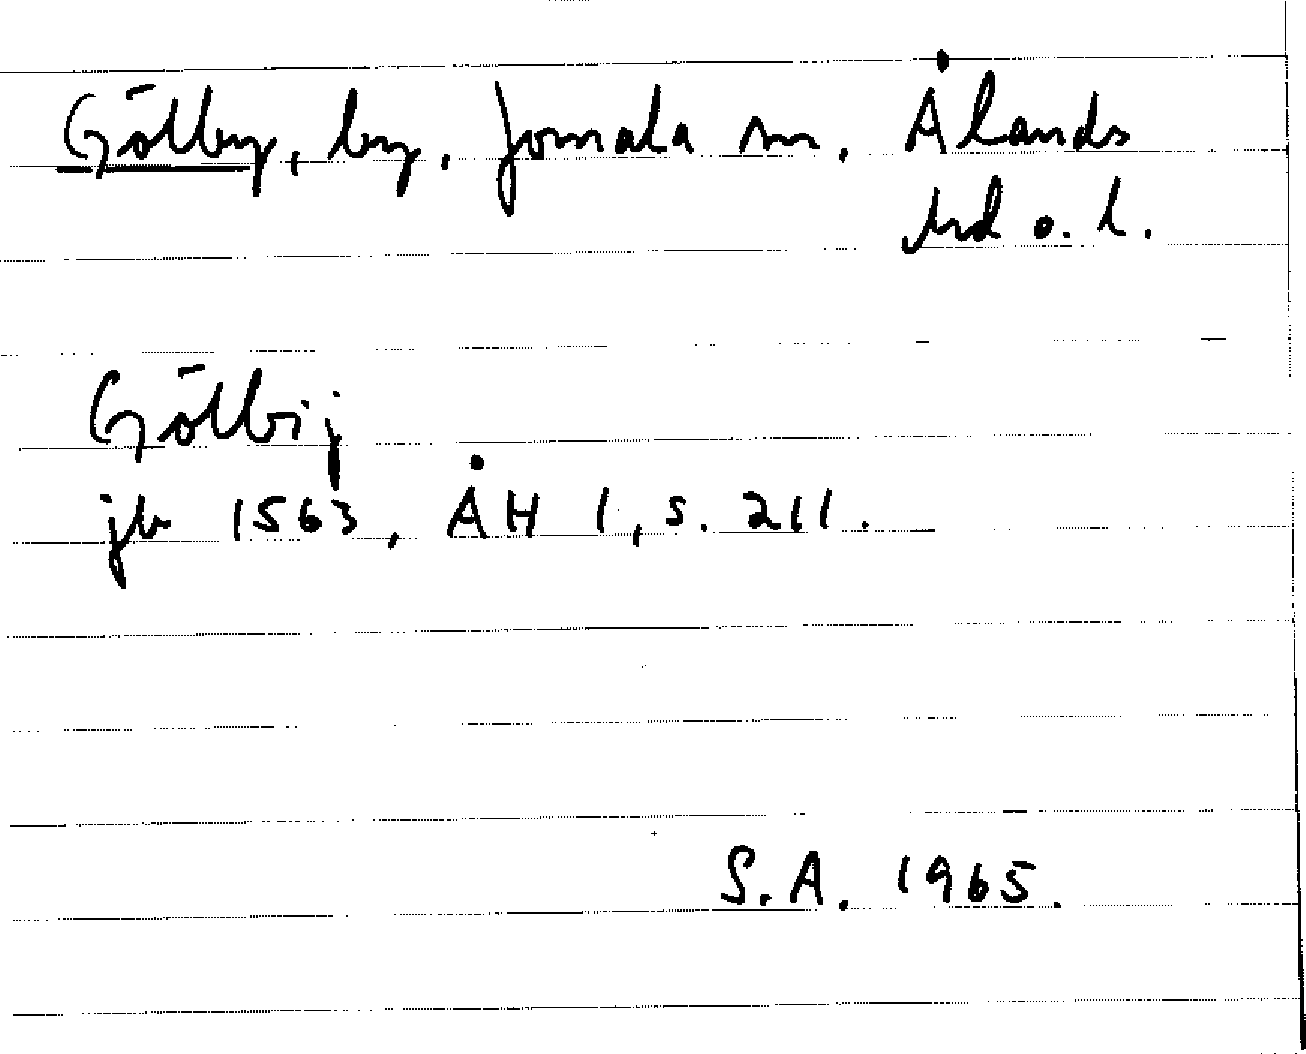 Gölby, by. Jomala sn. Ålands
hd o. l.
Gölbij
jb 1563, ÅH 1, s. 211.
S.A. 1965.